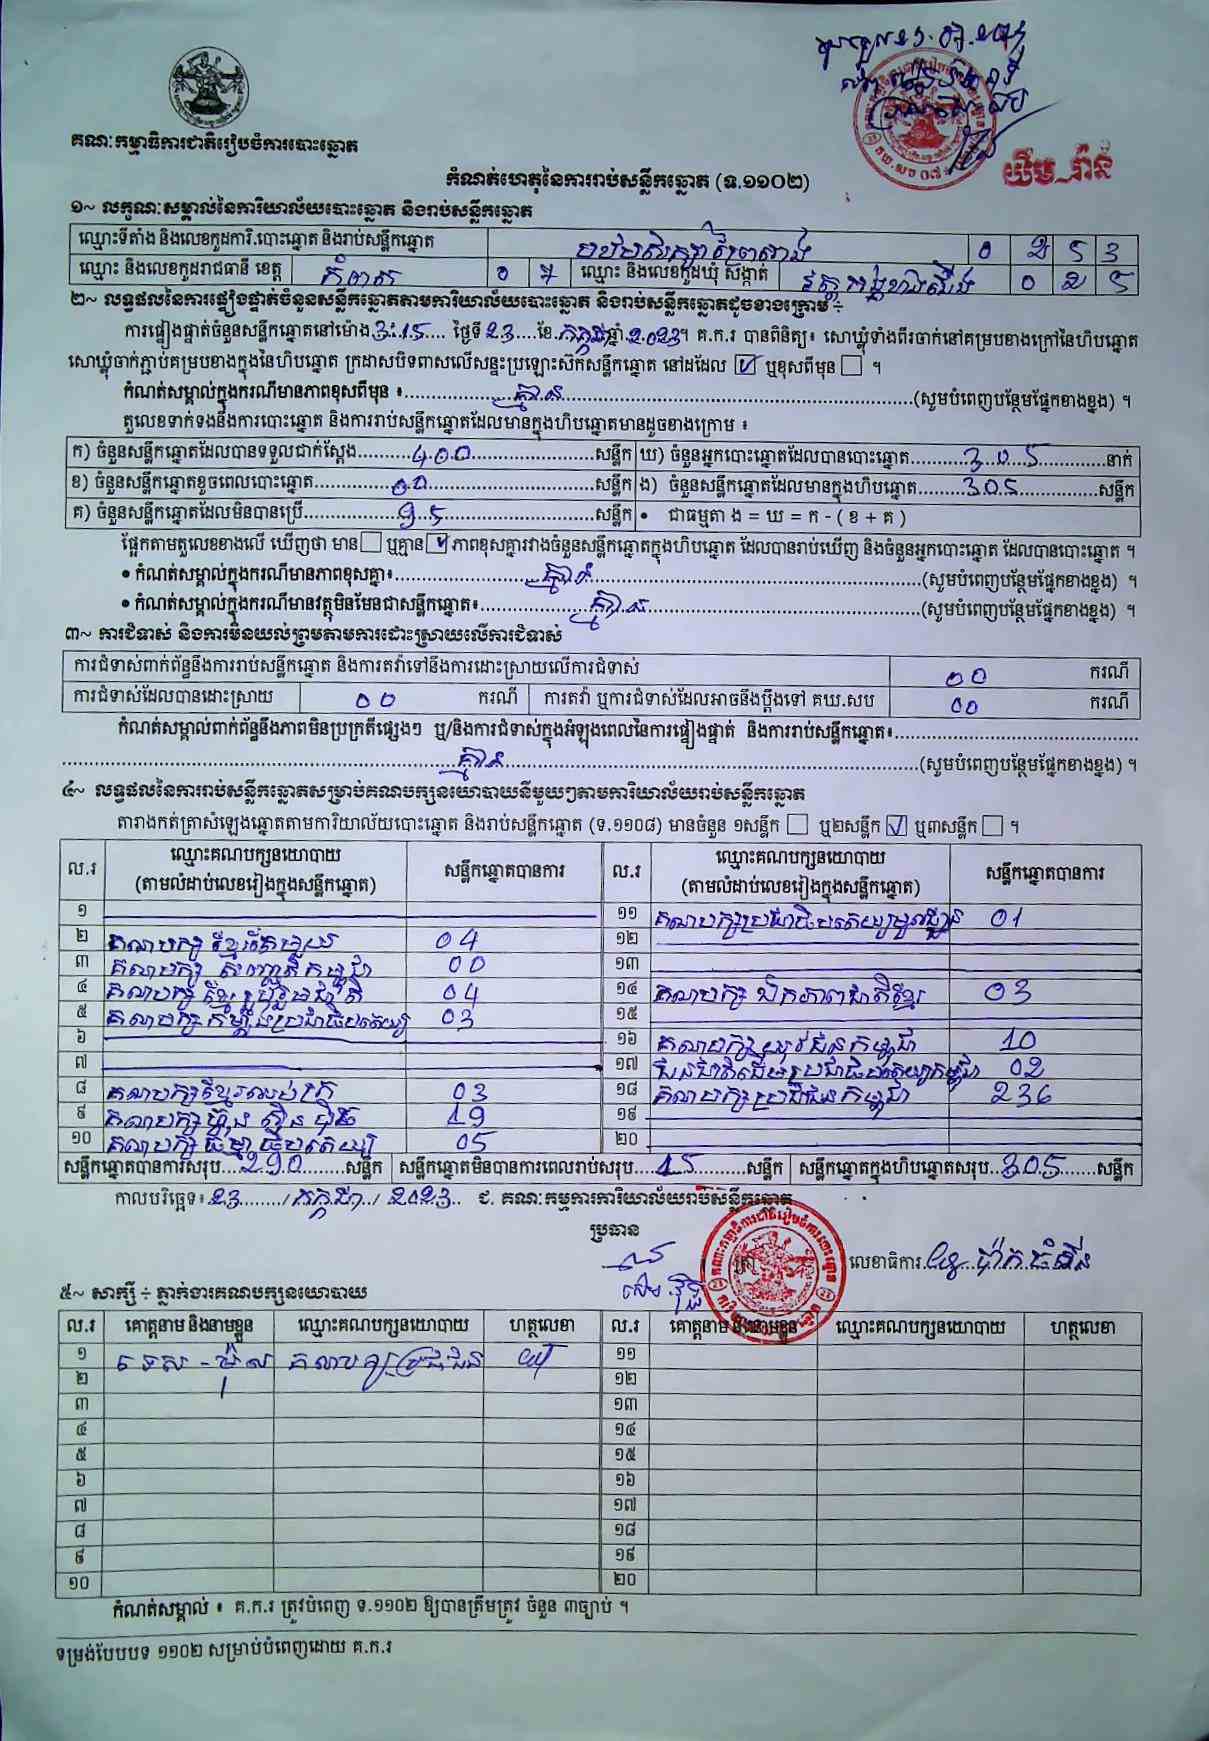 គណៈកម្មាធិការជាតិរៀបចំការបោះឆ្នោត
យឹម រ៉ាន់
កំណត់ហេតុនៃការរាប់សន្លឹកឆ្នោត (ទ.១១០២)
១~ លក្ខណៈសម្គាល់នៃការិយាល័យបោះឆ្នោត និងរាប់សន្លឹកឆ្នោត
ឈ្មោះទីតាំង និងលេខកូដការិ.បោះឆ្នោត និងរាប់សន្លឹកឆ្នោត 0 2 5 3
ឈ្មោះ និងលេខកូដរាជធានី ខេត្ត កំពត 0 7 ឈ្មោះ និងលេខកូដឃុំ សង្កាត់ វត្តអង្គខាងជើង 0 2 5
២~ លទ្ធផលនៃការផ្ទៀងផ្ទាត់ចំនួនសន្លឹកឆ្នោតតាមការិយាល័យបោះឆ្នោត និងរាប់សន្លឹកឆ្នោតដូចខាងក្រោម ÷
ការផ្ទៀងផ្ទាត់ចំនួនសន្លឹកឆ្នោតនៅម៉ោង 3:15 ថ្ងៃទី 23 ខែ កក្កដា ឆ្នាំ 2023។ គ.ក.រ បានពិនិត្យ៖ សោឃ្លុំទាំងពីរចាក់នៅគម្របខាងក្រៅនៃហិបឆ្នោត
សោឃ្លុំចាក់ភ្ជាប់គម្របខាងក្នុងនៃហិបឆ្នោត ក្រដាសបិទពាសលើសន្ទះប្រឡោះស៊កសន្លឹកឆ្នោត នៅដដែល ☑ ឬខុសពីមុន ☐ ។
កំណត់សម្គាល់ក្នុងករណីមានភាពខុសពីមុន ៖ គ្មាន (សូមបំពេញបន្ថែមផ្នែកខាងខ្នង) ។
តួលេខទាក់ទងនឹងការបោះឆ្នោត និងការរាប់សន្លឹកឆ្នោតដែលមានក្នុងហិបឆ្នោតមានដូចខាងក្រោម ៖
ក) ចំនួនសន្លឹកឆ្នោតដែលបានទទួលជាក់ស្តែង 400 សន្លឹក ឃ) ចំនួនអ្នកបោះឆ្នោតដែលបានបោះឆ្នោត 305 នាក់
ខ) ចំនួនសន្លឹកឆ្នោតខូចពេលបោះឆ្នោត 00 សន្លឹក ង) ចំនួនសន្លឹកឆ្នោតដែលមានក្នុងហិបឆ្នោត 305 សន្លឹក
គ) ចំនួនសន្លឹកឆ្នោតដែលមិនបានប្រើ 95 សន្លឹក • ជាធម្មតា ង = ឃ = ក - ( ខ + គ )
ផ្អែកតាមតួលេខខាងលើ ឃើញថា មាន ☐ ឬគ្មាន ☑ ភាពខុសគ្នារវាងចំនួនសន្លឹកឆ្នោតក្នុងហិបឆ្នោត ដែលបានរាប់ឃើញ និងចំនួនអ្នកបោះឆ្នោត ដែលបានបោះឆ្នោត ។
• កំណត់សម្គាល់ក្នុងករណីមានភាពខុសគ្នា៖ គ្មាន (សូមបំពេញបន្ថែមផ្នែកខាងខ្នង) ។
• កំណត់សម្គាល់ក្នុងករណីមានវត្ថុមិនមែនជាសន្លឹកឆ្នោត៖ គ្មាន (សូមបំពេញបន្ថែមផ្នែកខាងខ្នង) ។
៣~ ការជំទាស់ និងការមិនយល់ព្រមតាមការដោះស្រាយលើការជំទាស់
ការជំទាស់ពាក់ព័ន្ធនឹងការរាប់សន្លឹកឆ្នោត និងការតវ៉ាទៅនឹងការដោះស្រាយលើការជំទាស់ 00 ករណី
ការជំទាស់ដែលបានដោះស្រាយ 00 ករណី ការតវ៉ា ឬការជំទាស់ដែលអាចនឹងប្តឹងទៅ គឃ.សប 00 ករណី
កំណត់សម្គាល់ពាក់ព័ន្ធនឹងភាពមិនប្រក្រតីផ្សេងៗ ឬ/និងការជំទាស់ក្នុងអំឡុងពេលនៃការផ្ទៀងផ្ទាត់ និងការរាប់សន្លឹកឆ្នោត៖
គ្មាន (សូមបំពេញបន្ថែមផ្នែកខាងខ្នង) ។
៤~ លទ្ធផលនៃការរាប់សន្លឹកឆ្នោតសម្រាប់គណបក្សនយោបាយនីមួយៗតាមការិយាល័យរាប់សន្លឹកឆ្នោត
តារាងកត់ត្រាសំឡេងឆ្នោតតាមការិយាល័យបោះឆ្នោត និងរាប់សន្លឹកឆ្នោត (ទ.១១០៨) មានចំនួន ១សន្លឹក ☐ ឬ២សន្លឹក ☑ ឬ៣សន្លឹក ☐ ។
ល.រ ឈ្មោះគណបក្សនយោបាយ (តាមលំដាប់លេខរៀងក្នុងសន្លឹកឆ្នោត) សន្លឹកឆ្នោតបានការ ល.រ ឈ្មោះគណបក្សនយោបាយ (តាមលំដាប់លេខរៀងក្នុងសន្លឹកឆ្នោត) សន្លឹកឆ្នោតបានការ
១ ១១ គណបក្សប្រជាធិបតេយ្យមូលដ្ឋាន 01
២ គណបក្សខ្មែរតែមួយ 04 ១២
៣ គណបក្ស សញ្ជាតិកម្ពុជា 00 ១៣
៤ គណបក្សខ្មែររួបរួមជាតិ 04 ១៤ គណបក្ស ឯកភាពជាតិខ្មែរ 03
៥ គណបក្សកម្លាំងប្រជាធិបតេយ្យ 03 ១៥
៦ ១៦ គណបក្សយុវជនកម្ពុជា 10
៧ ១៧ ជនជាតិដើមប្រជាធិបតេយ្យកម្ពុជា 02
៨ គណបក្សខ្មែរឈប់ក្រ 03 ១៨ គណបក្សប្រជាជនកម្ពុជា 236
៩ គណបក្សហ្វ៊ុនស៊ិនប៉ិច 19 ១៩
១០ គណបក្សធម្មាធិបតេយ្យ 05 ២០
សន្លឹកឆ្នោតបានការសរុប 290 សន្លឹក សន្លឹកឆ្នោតមិនបានការពេលរាប់សរុប 15 សន្លឹក សន្លឹកឆ្នោតក្នុងហិបឆ្នោតសរុប 305 សន្លឹក
កាលបរិច្ឆេទ៖ 23 / កក្កដា / 2023 ជ. គណៈកម្មការការិយាល័យរាប់សន្លឹកឆ្នោត
ប្រធាន
លេខាធិការ
៥~ សាក្សី ÷ ភ្នាក់ងារគណបក្សនយោបាយ
ល.រ គោត្តនាម និងនាមខ្លួន ឈ្មោះគណបក្សនយោបាយ ហត្ថលេខា ល.រ គោត្តនាម និងនាមខ្លួន ឈ្មោះគណបក្សនយោបាយ ហត្ថលេខា
១ ទេស - ម៉ុល គណបក្សប្រជាជន ១១
២ ១២
៣ ១៣
៤ ១៤
៥ ១៥
៦ ១៦
៧ ១៧
៨ ១៨
៩ ១៩
១០ ២០
កំណត់សម្គាល់ ៖ គ.ក.រ ត្រូវបំពេញ ទ.១១០២ ឱ្យបានត្រឹមត្រូវ ចំនួន ៣ច្បាប់ ។
ទម្រង់បែបបទ ១១០២ សម្រាប់បំពេញដោយ គ.ក.រ